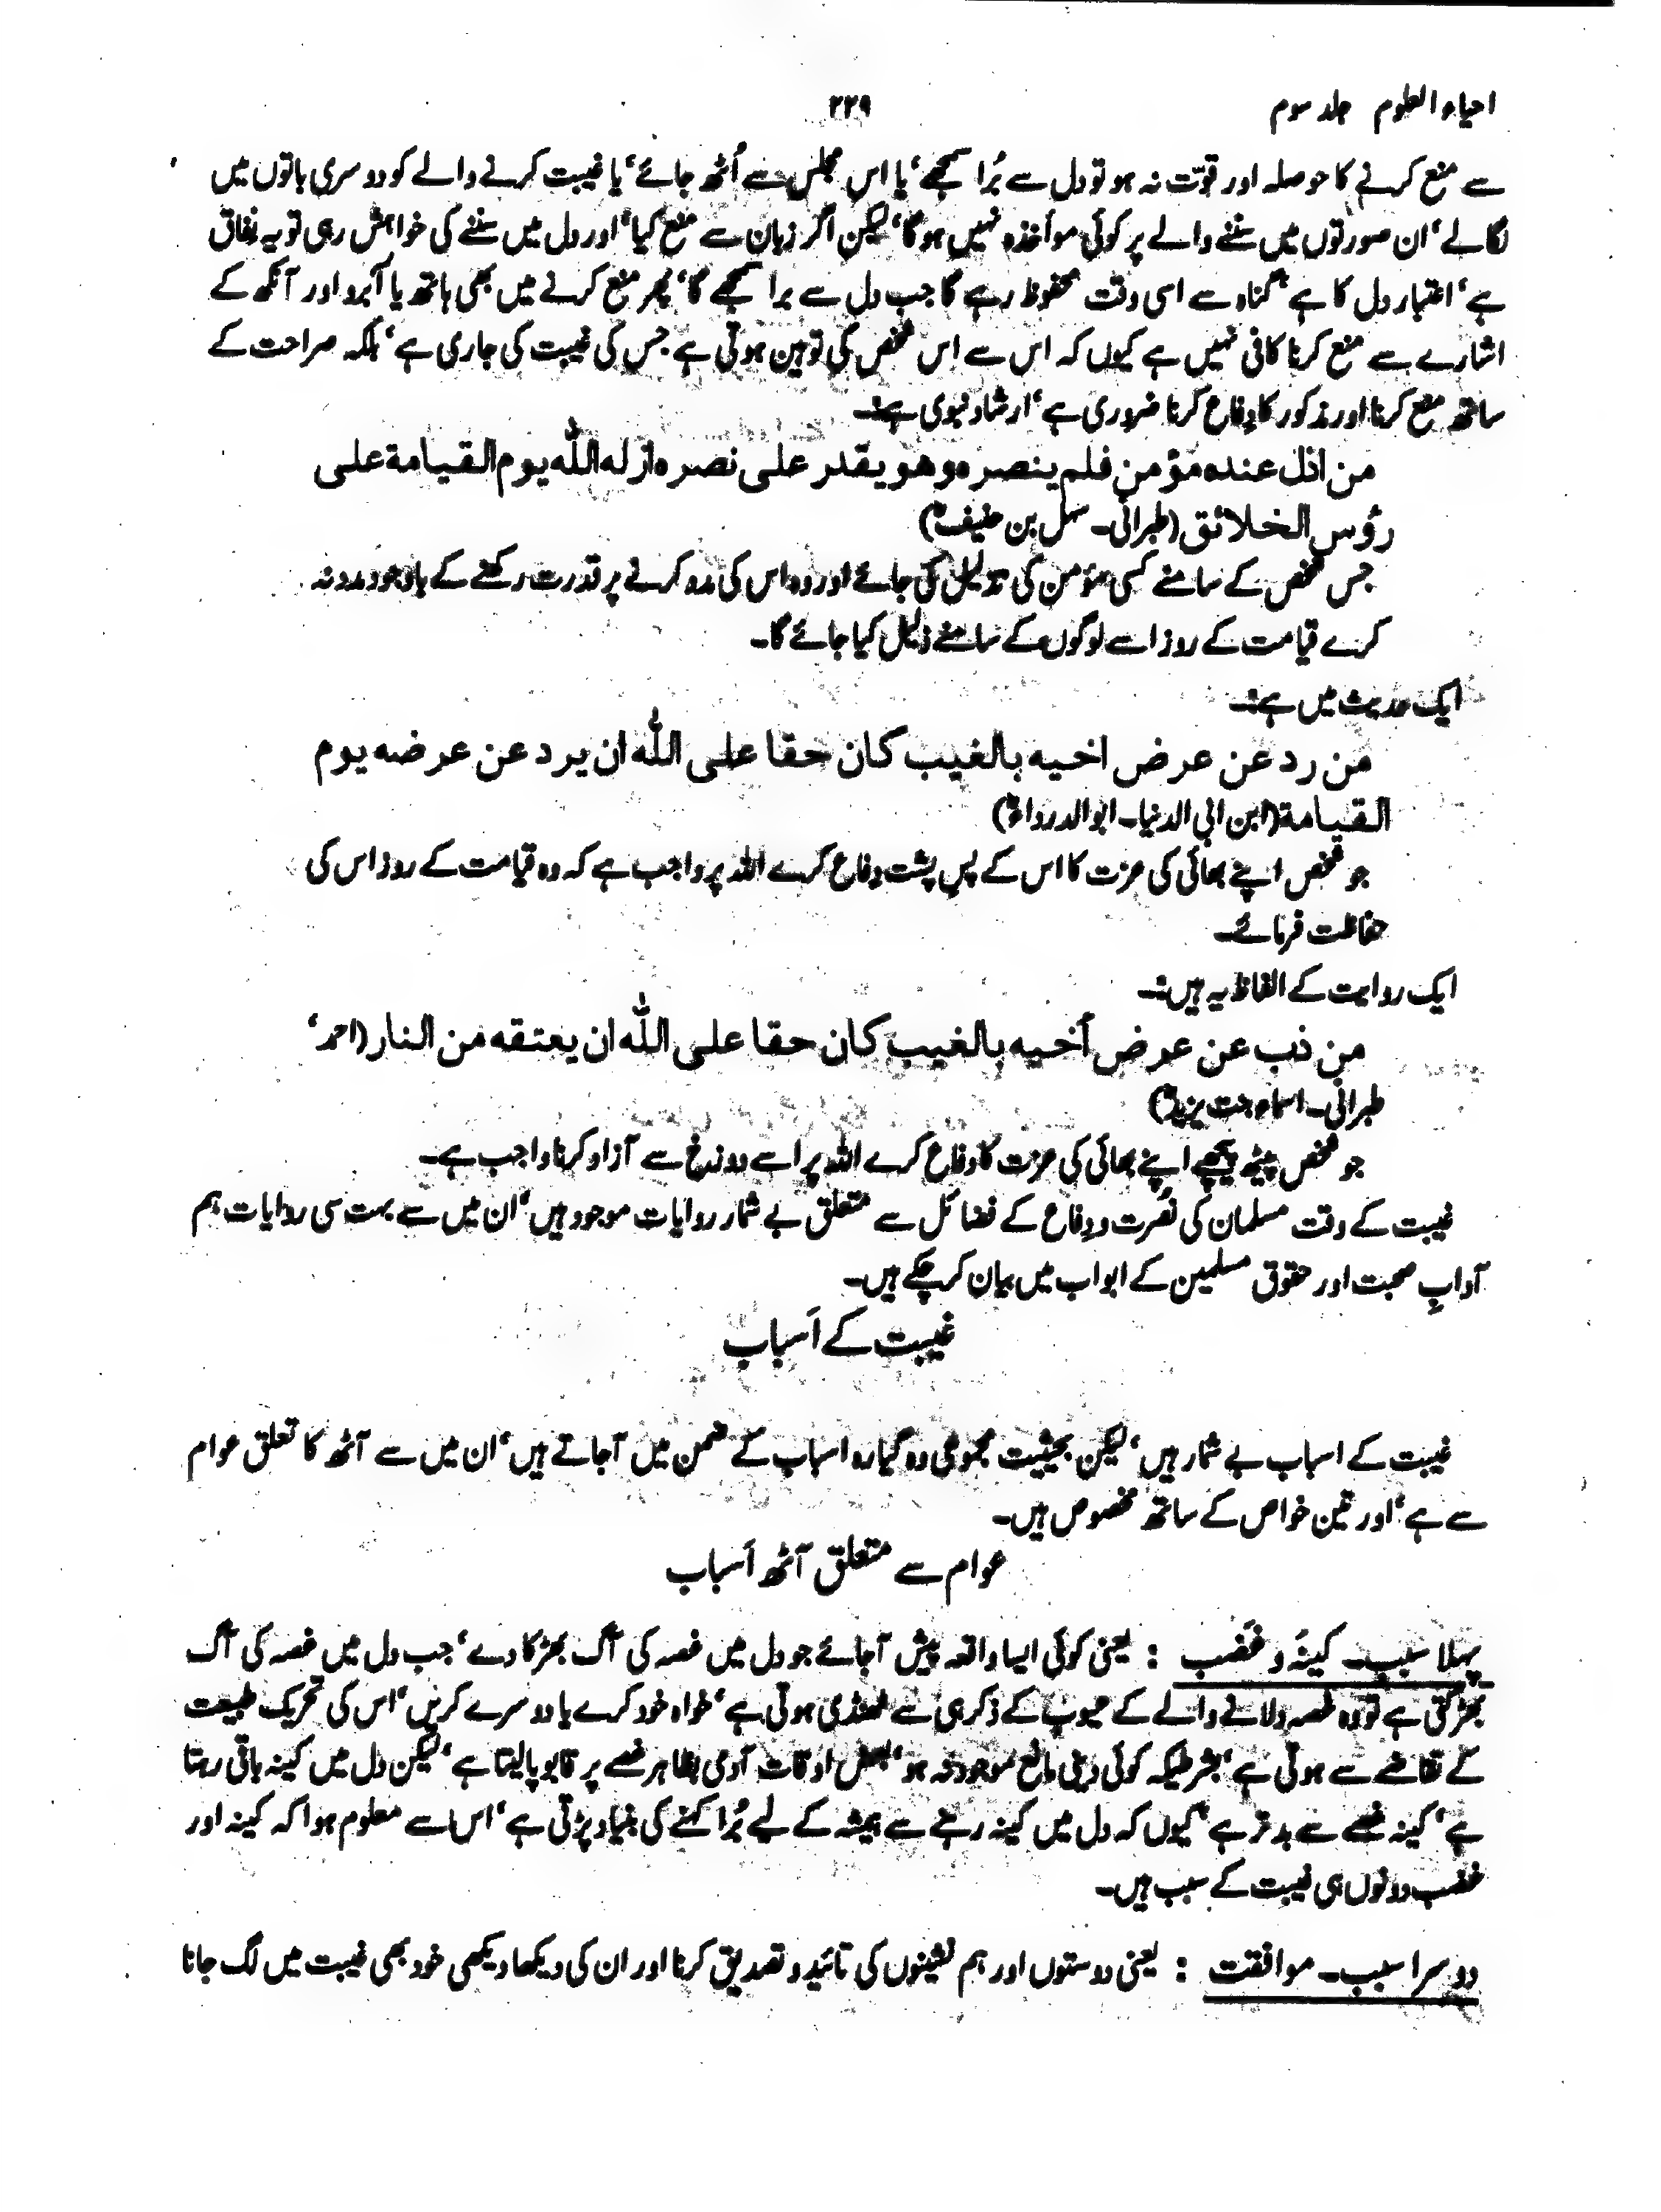 احیاء العلوم جلد سوم
۲۲۹
سے منع کرنے کا حوصلہ اور قوت نہ ہو تو دل سے بُرا سمجھے، یا اس مجلس سے اُٹھ جائے، یا غیبت کرنے والے کو دوسری باتوں میں
لگا لے، ان صورتوں میں سننے والے پر کوئی مواخذہ نہیں ہوگا، لیکن اگر زبان سے منع کیا، اور دل میں سننے کی خواہش رہی تو یہ نفاق
ہے، اعتبار دل کا ہے، گناہ سے اسی وقت محفوظ رہے گا جب دل سے برا سمجھے گا، پھر منع کرنے میں بھی ہاتھ یا آبرو اور آنکھ کے
اشارے سے منع کرنا کافی نہیں ہے کیوں کہ اس سے اس شخص کی توہین ہوتی ہے جس کی غیبت کی جاری ہے، بلکہ صراحت کے
ساتھ منع کرنا اور مذکور کا دفاع کرنا ضروری ہے، ارشاد نبوی ہے:۔
من اذل عنده مؤمن فلم ينصره وهو يقدر على نصره اذله الله يوم القيامة على
رؤس الخلائق (طبرانی۔ سہل بن حنیفؓ)
جس شخص کے سامنے کسی مؤمن کی تذلیل کی جائے اور وہ اس کی مدد کرنے پر قدرت رکھنے کے باوجود مدد نہ
کرے قیامت کے روز اسے لوگوں کے سامنے ذلیل کیا جائے گا۔
ایک حدیث میں ہے:۔
من رد عن عرض اخيه بالغيب كان حقا على الله ان يرد عن عرضه يوم
القيامة (ابن ابی الدنیا۔ ابوالدرداءؓ)
جو شخص اپنے بھائی کی عزت کا اس کے پسِ پشت دفاع کرے اللہ پر واجب ہے کہ وہ قیامت کے روز اس کی
حفاظت فرمائے۔
ایک روایت کے الفاظ یہ ہیں:۔
من ذب عن عرض أخيه بالغيب كان حقا على الله ان يعتقه من النار (احمد،
طبرانی۔ اسماء بنت یزیدؓ)
جو شخص پیٹھ پیچھے اپنے بھائی کی عزت کا دفاع کرے اللہ پر اسے دوزخ سے آزاد کرنا واجب ہے۔
غیبت کے وقت مسلمان کی نُصرت و دِفاع کے فضائل سے متعلق بے شمار روایات موجود ہیں، ان میں سے بہت سی روایات ہم
آدابِ صحبت اور حقوق مسلمین کے ابواب میں بیان کر چکے ہیں۔
غیبت کے اَسباب
غیبت کے اسباب بے شمار ہیں، لیکن بحیثیت مجموعی وہ گیارہ اسباب کے ضمن میں آجاتے ہیں، ان میں سے آٹھ کا تعلق عوام
سے ہے، اور تین خواص کے ساتھ مخصوص ہیں۔
عوام سے متعلق آٹھ اَسباب
پہلا سبب۔ کینہ و غَضَب : یعنی کوئی ایسا واقعہ پیش آجائے جو دل میں غصہ کی آگ بھڑکا دے، جب دل میں غصہ کی آگ
بھڑکتی ہے تو وہ غصہ دلانے والے کے عیوب کے ذکر ہی سے ٹھنڈی ہوتی ہے، خواہ خود کرے یا دوسرے کریں، اس کی تحریک طبیعت
کے تقاضے سے ہوتی ہے، بشرطیکہ کوئی دینی مانع موجود نہ ہو، بعض اوقات آدمی بظاہر غصے پر قابو پا لیتا ہے، لیکن دل میں کینہ باقی رہتا
ہے، کینہ غصے سے بدتر ہے، کیوں کہ دل میں کینہ رہنے سے ہمیشہ کے لیے بُرا کہنے کی بنیاد پڑتی ہے، اس سے معلوم ہوا کہ کینہ اور
غضب دونوں ہی غیبت کے سبب ہیں۔
دوسرا سبب۔ موافقت : یعنی دوستوں اور ہم نشینوں کی تائید و تصدیق کرنا اور ان کی دیکھا دیکھی خود بھی غیبت میں لگ جانا